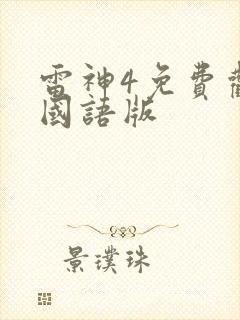 雷神4免費
國語版
景璞珠